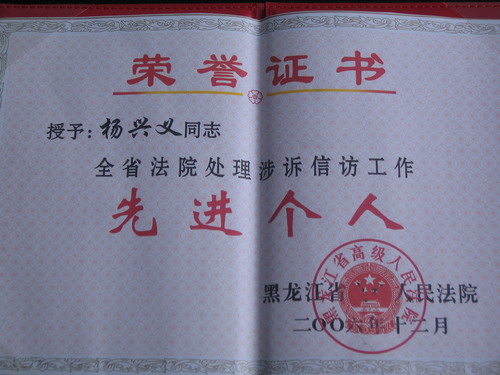 荣誉证书
授予：杨兴义同志
全省法院处理涉诉信访工作
先进个人
黑龙江省高级人民法院
黑龙江省 人民法院
二〇〇六年十二月